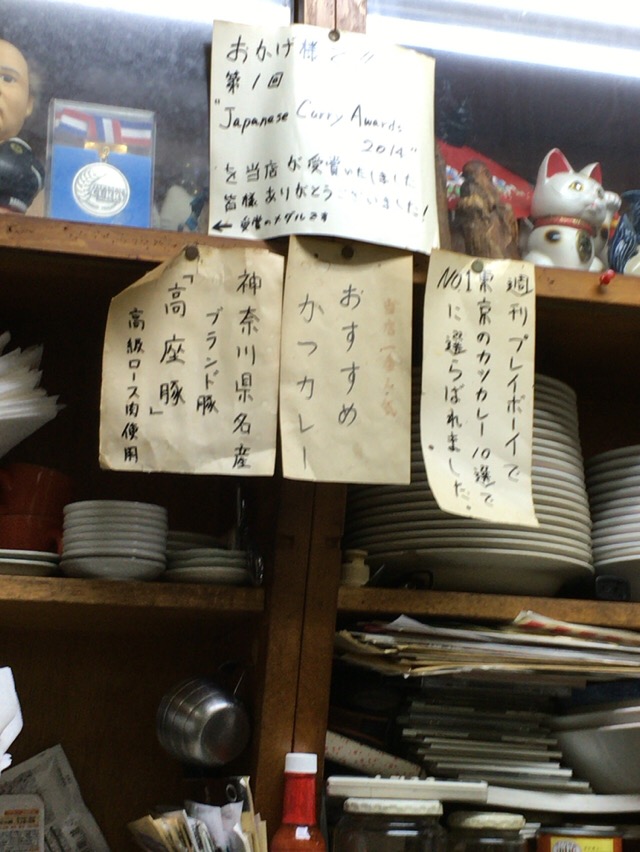 おかげ様で!!
第1回
"Japanese Curry Awards
2014"
を当店が受賞いたしました
皆様ありがとうございました!
← 受賞のメダルです
週刊プレイボーイで
東京のカツカレー10選で
NO1に選らばれました。
おすすめ
かつカレー
神奈川県名産
ブランド豚
「高座豚」
高級ロース肉使用